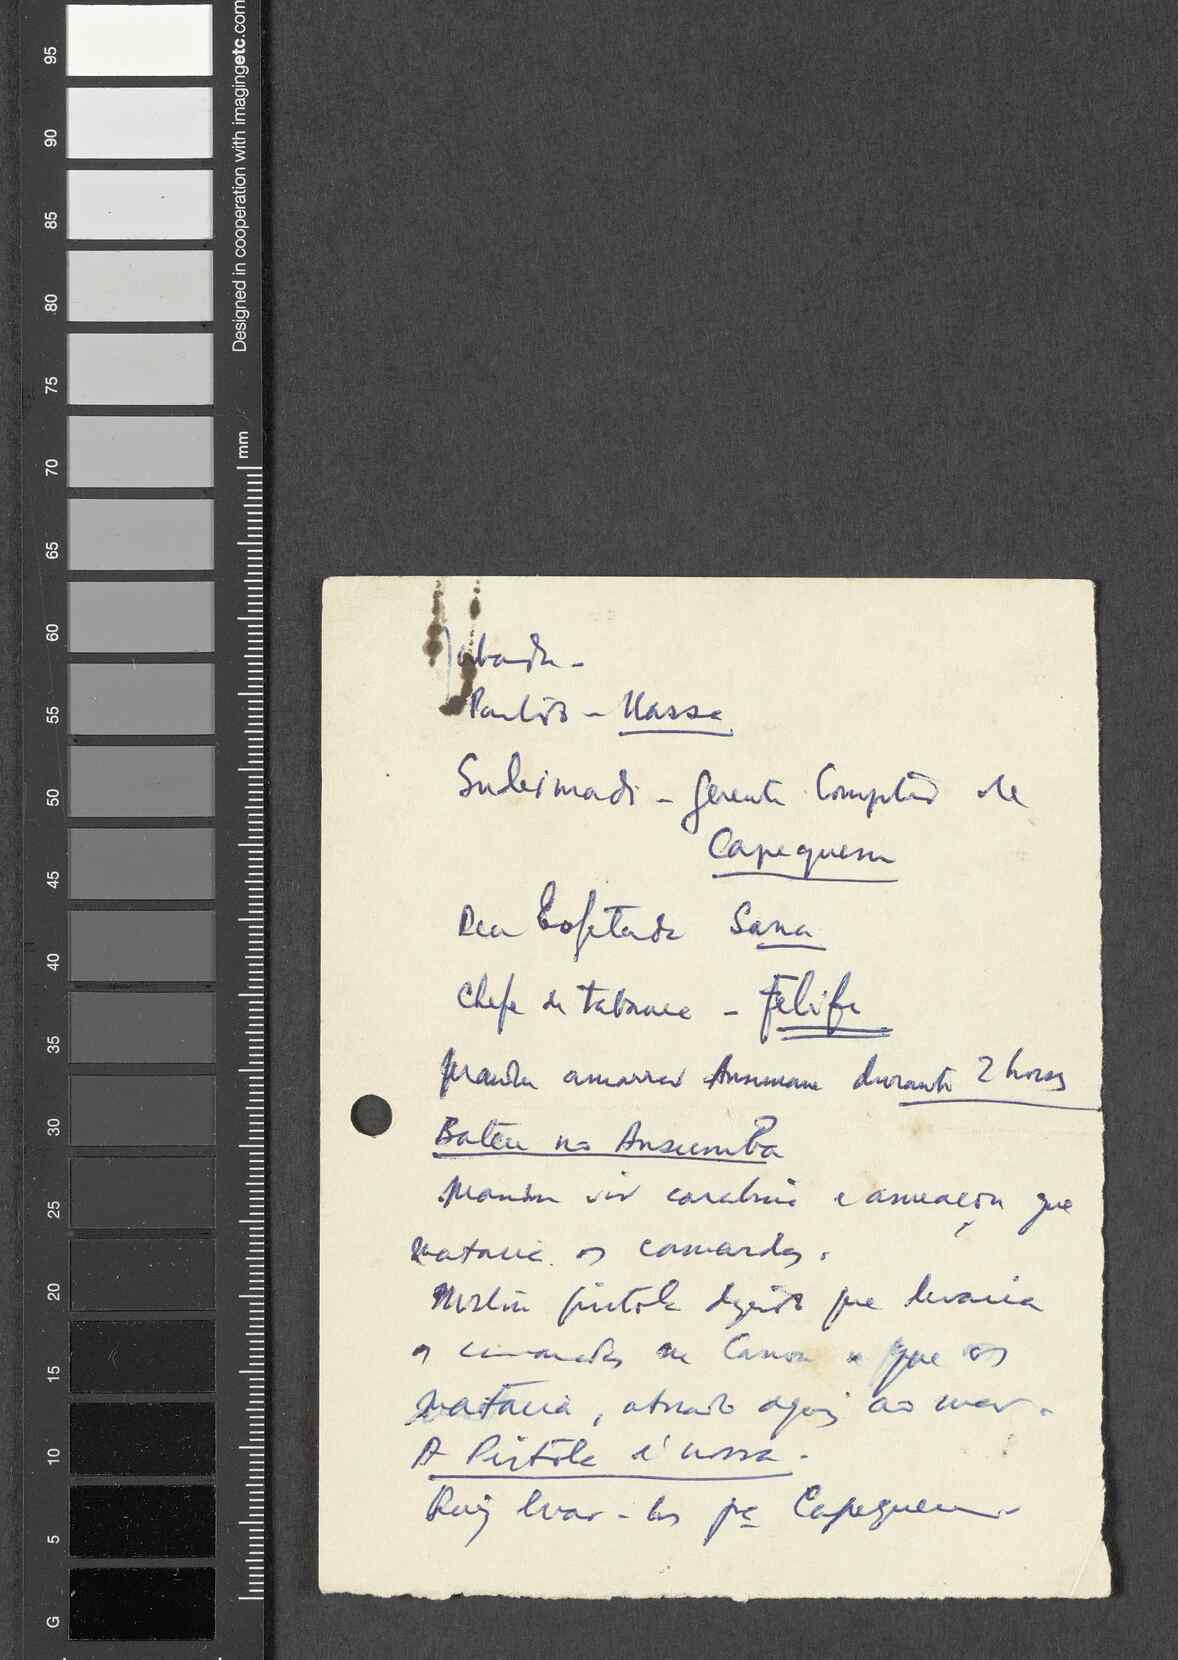 95
90
85
80
75
70
65
60
55
50
45
40
35
30
25
20
15
10
5
G
Designed in cooperation with imagingetc.com
mm
Suleimadi - gerente de
Capequem
Deu bofetada Sana
Chefe de tabanca - Felife
Mandou amarrar Ansumane durante 2 horas
Bateu no Ansumba
Mandou vir carabina e ameaçou que
mataria os camaradas.
pistola dizendo que levaria
os camaradas e que os
mataria, ao mar.
A Pistola é nossa.
levar-los pª Capequem.